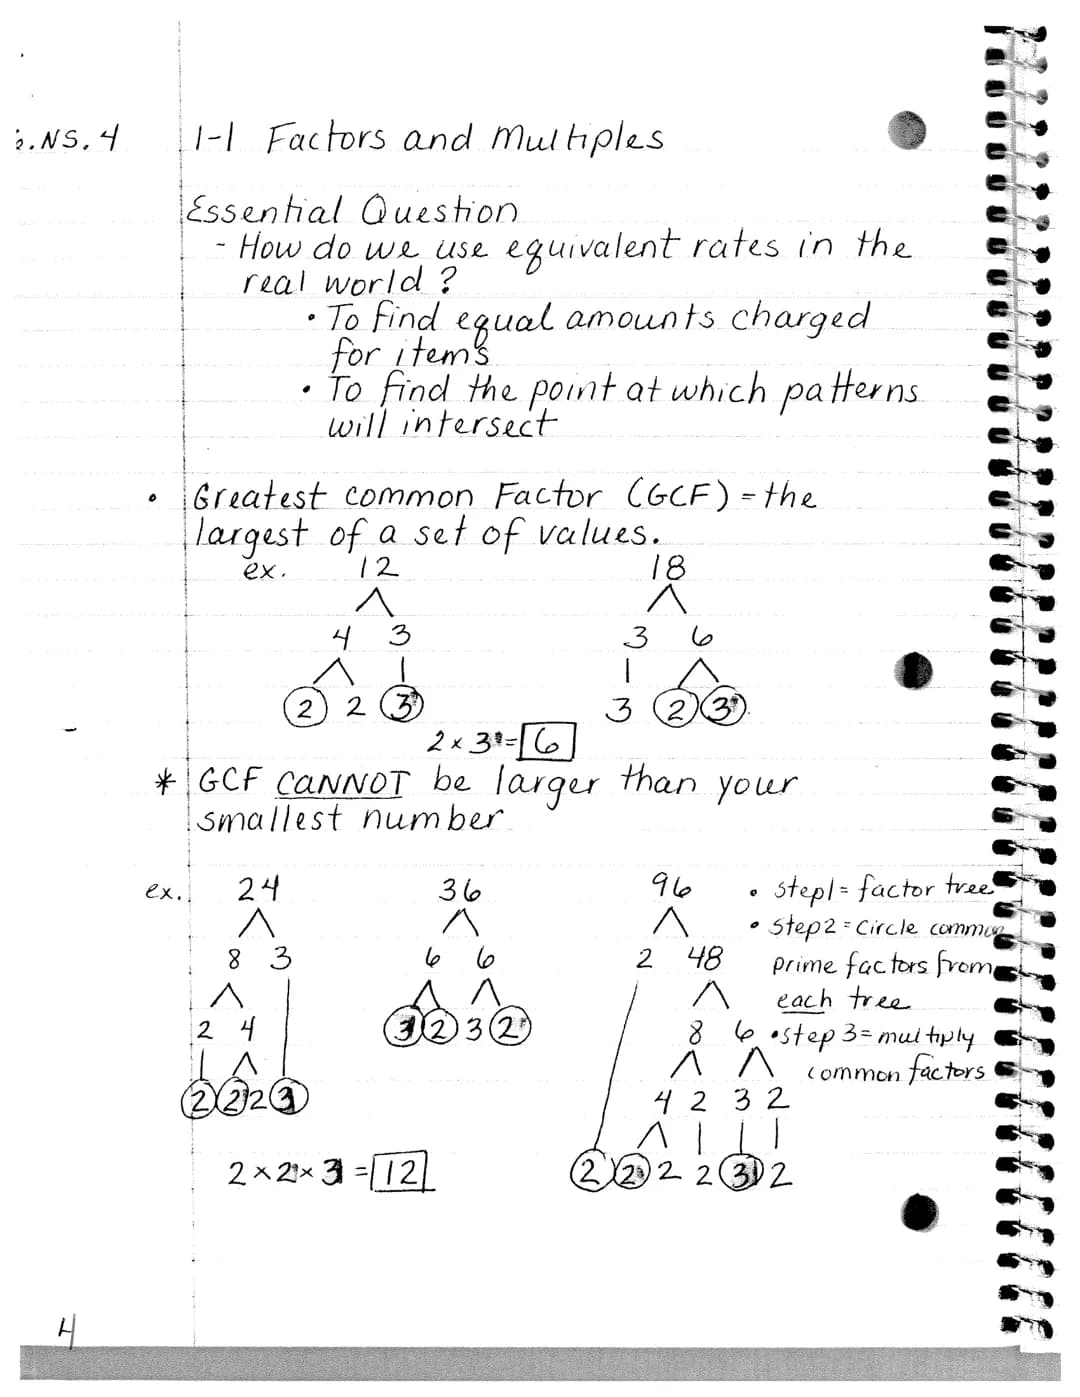 6.NS.4 1-1 Factors and Multiples
Essential Question
- How do we use equivalent rates in the
real world?
• To find equal amounts charged
for items
• To find the point at which patterns
will intersect
• Greatest common Factor (GCF) = the
largest of a set of values.
ex. 12 18
4 3 3 6
2 2 3 3 2 3
2 x 3 = 6
* GCF CANNOT be larger than your
smallest number
ex. 24 36 96 • step1 = factor tree
• Step2 = Circle common
8 3 6 6 2 48 prime factors from
each tree
2 4 3 2 3 2 8 6 • step 3 = multiply
common factors
2 2 2 3 4 2 3 2
2 x 2 x 3 = 12 2 2 2 2 3 2
4